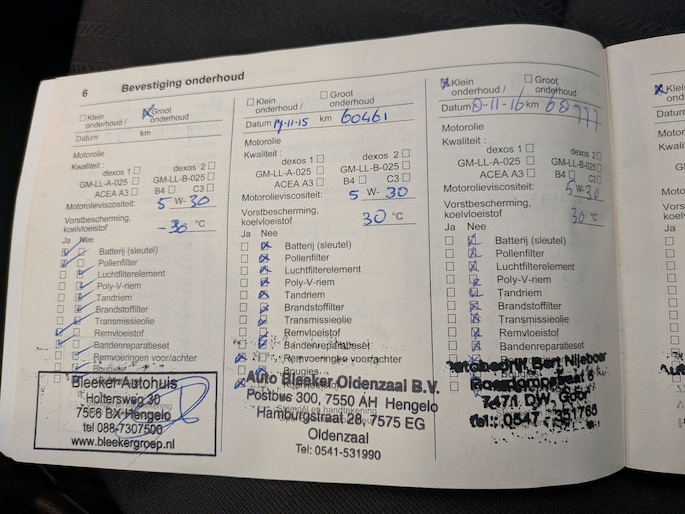 6 Bevestiging onderhoud
Klein onderhoud / Groot onderhoud
Datum km
Motorolie
Kwaliteit :
dexos 1 dexos 2
GM-LL-A-025 GM-LL-B-025
ACEA A3 B4 C3
Motorolieviscositeit: 5 W- 30
Vorstbescherming, koelvloeistof -30 °C
Ja Nee
Batterij (sleutel)
Pollenfilter
Luchtfilterelement
Poly-V-riem
Tandriem
Brandstoffilter
Transmissieolie
Remvloeistof
Bandenreparatieset
Remvoeringen voor/achter
Bougies
Bleeker Autohuis
Holtersweg 30
7556 BX Hengelo
tel 088-7307500
www.bleekergroep.nl
Klein onderhoud / Groot onderhoud
Datum km 60461
Motorolie
Kwaliteit :
dexos 1 dexos 2
GM-LL-A-025 GM-LL-B-025
ACEA A3 B4 C3
Motorolieviscositeit: 5 W- 30
Vorstbescherming, koelvloeistof 30 °C
Ja Nee
Batterij (sleutel)
Pollenfilter
Luchtfilterelement
Poly-V-riem
Tandriem
Brandstoffilter
Transmissieolie
Remvloeistof
Bandenreparatieset
Remvoeringen voor/achter
Bougies
Auto Bleeker Oldenzaal B.V.
Postbus 300, 7550 AH Hengelo
Stempel en handtekening
Hamburgstraat 28, 7575 EG
Oldenzaal
Tel: 0541-531990
Klein onderhoud / Groot onderhoud
Datum km
Motorolie
Kwaliteit :
dexos 1 dexos 2
GM-LL-A-025 GM-LL-B-025
ACEA A3 B4 C3
Motorolieviscositeit: 5 W- 30
Vorstbescherming, koelvloeistof 30 °C
Ja Nee
Batterij (sleutel)
Pollenfilter
Luchtfilterelement
Poly-V-riem
Tandriem
Brandstoffilter
Transmissieolie
Remvloeistof
Bandenreparatieset
Bert Nijeboer
7471 DW Goor
tel.: 0547 - 351765